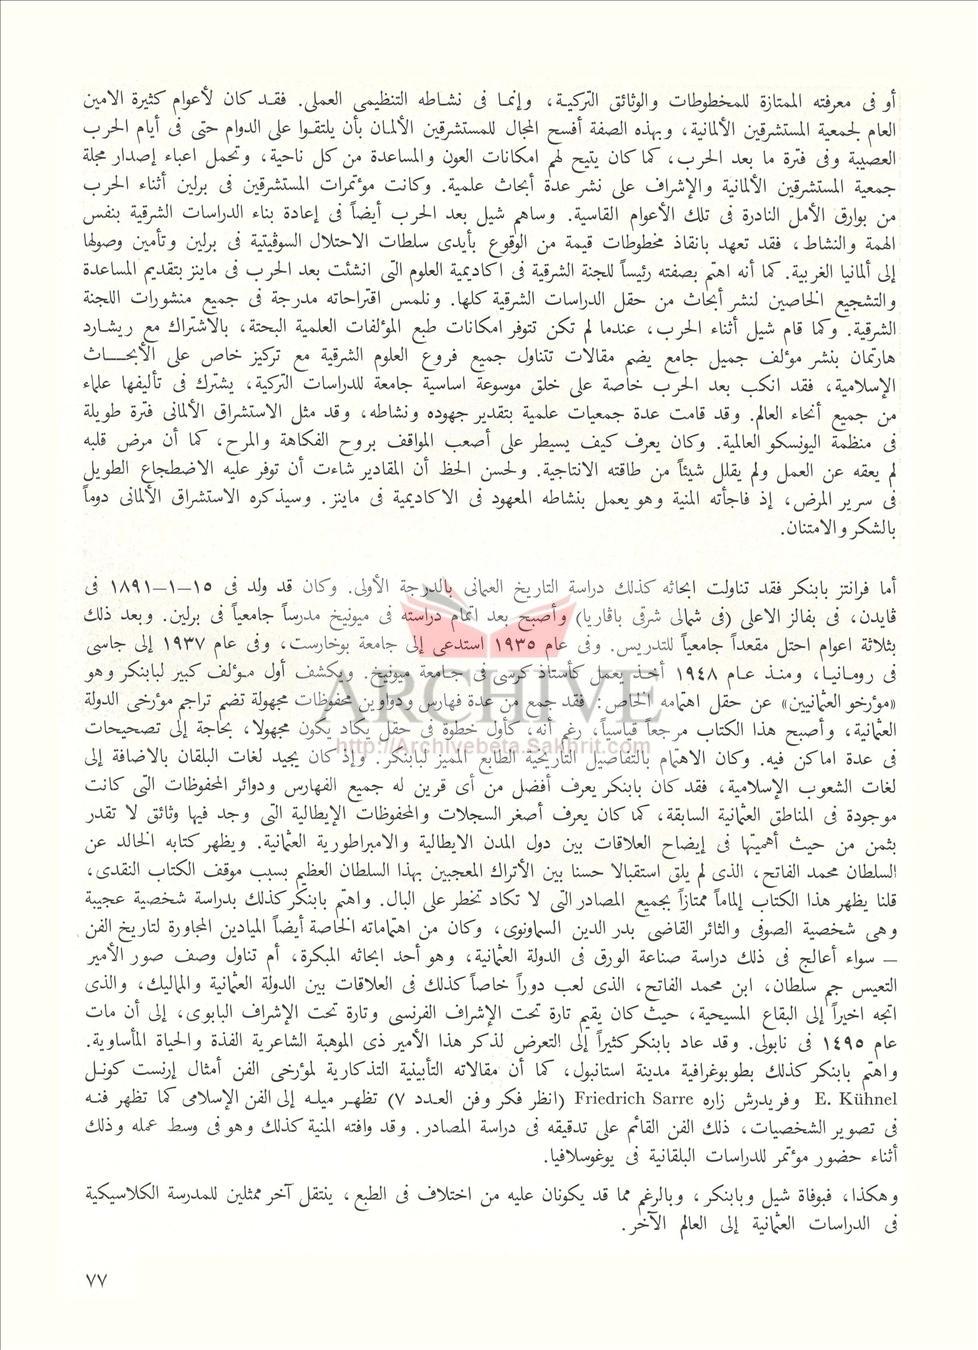 أو فى معرفته الممتازة للمخطوطات والوثائق التركية، وإنما فى نشاطه التنظيمى العملى. فقد كان لأعوام كثيرة الامين
العام لجمعية المستشرقين الألمانية، وبهذه الصفة أفسح المجال للمستشرقين الألمان بأن يلتقوا على الدوام حتى فى أيام الحرب
العصيبة وفى فترة ما بعد الحرب، كما كان يتيح لهم امكانات العون والمساعدة من كل ناحية، وتحمل اعباء إصدار مجلة
جمعية المستشرقين الألمانية والإشراف على نشر عدة أبحاث علمية. وكانت مؤتمرات المستشرقين فى برلين أثناء الحرب
من بوارق الأمل النادرة فى تلك الأعوام القاسية. وساهم شيل بعد الحرب أيضاً فى إعادة بناء الدراسات الشرقية بنفس
الهمة والنشاط، فقد تعهد بانقاذ مخطوطات قيمة من الوقوع بأيدى سلطات الاحتلال السوڤيتية فى برلين وتأمين وصولها
إلى ألمانيا الغربية. كما أنه اهتم بصفته رئيساً للجنة الشرقية فى اكاديمية العلوم التى انشئت بعد الحرب فى ماينز بتقديم المساعدة
والتشجيع الخاصين لنشر أبحاث من حقل الدراسات الشرقية كلها. ونلمس اقتراحاته مدرجة فى جميع منشورات اللجنة
الشرقية. وكما قام شيل أثناء الحرب، عندما لم تكن تتوفر امكانات طبع المؤلفات العلمية البحتة، بالاشتراك مع ريشارد
هارتمان بنشر مؤلف جميل جامع يضم مقالات تتناول جميع فروع العلوم الشرقية مع تركيز خاص على الأبحــاث
الإسلامية، فقد انكب بعد الحرب خاصة على خلق موسوعة اساسية جامعة للدراسات التركية، يشترك فى تأليفها علماء
من جميع أنحاء العالم. وقد قامت عدة جمعيات علمية بتقدير جهوده ونشاطه، وقد مثل الاستشراق الألمانى فترة طويلة
فى منظمة اليونسكو العالمية. وكان يعرف كيف يسيطر على أصعب المواقف بروح الفكاهة والمرح، كما أن مرض قلبه
لم يعقه عن العمل ولم يقلل شيئاً من طاقته الانتاجية. ولحسن الحظ أن المقادير شاءت أن توفر عليه الاضطجاع الطويل
فى سرير المرض، إذ فاجأته المنية وهو يعمل بنشاطه المعهود فى الاكاديمية فى ماينز. وسيذكره الاستشراق الألمانى دوماً
بالشكر والامتنان.
أما فرانتز بابنكر فقد تناولت ابحاثه كذلك دراسة التاريخ العثمانى بالدرجة الأولى. وكان قد ولد فى ١٥–١–١٨٩١ فى
ڤايدن، فى بفالز الاعلى (فى شمالى شرقى باڤاريا) وأصبح بعد اتمام دراسته فى ميونيخ مدرساً جامعياً فى برلين. وبعد ذلك
بثلاثة اعوام احتل مقعداً جامعياً للتدريس. وفى عام ١٩٣٥ استدعى إلى جامعة بوخارست، وفى عام ١٩٣٧ إلى جاسى
فى رومانيا، ومنذ عام ١٩٤٨ أخذ يعمل كأستاذ كرسى فى جامعة ميونيخ. ويكشف أول مؤلف كبير لبابنكر وهو
«مؤرخو العثمانيين» عن حقل اهتمامه الخاص: فقد جمع من عدة فهارس ودواوين محفوظات مجهولة تضم تراجم مؤرخى الدولة
العثمانية، وأصبح هذا الكتاب مرجعاً قياسياً، رغم أنه، كأول خطوة فى حقل يكاد يكون مجهولا، بحاجة إلى تصحيحات
فى عدة اماكن فيه. وكان الاهتمام بالتفاصيل التاريخية الطابع المميز لبابنكر. وإذ كان يجيد لغات البلقان بالاضافة إلى
لغات الشعوب الإسلامية، فقد كان بابنكر يعرف أفضل من أى قرين له جميع الفهارس ودوائر المحفوظات التى كانت
موجودة فى المناطق العثمانية السابقة، كما كان يعرف أصغر السجلات والمحفوظات الإيطالية التى وجد فيها وثائق لا تقدر
بثمن من حيث أهميتها فى إيضاح العلاقات بين دول المدن الايطالية والامبراطورية العثمانية. ويظهر كتابه الخالد عن
السلطان محمد الفاتح، الذى لم يلق استقبالا حسنا بين الأتراك المعجبين بهذا السلطان العظيم بسبب موقف الكتاب النقدى،
قلنا يظهر هذا الكتاب إلماماً ممتازاً بجميع المصادر التى لا تكاد تخطر على البال. واهتم بابنكر كذلك بدراسة شخصية عجيبة
وهى شخصية الصوفى والثائر القاضى بدر الدين السماونوى، وكان من اهتماماته الخاصة أيضاً الميادين المجاورة لتاريخ الفن
– سواء أعالج فى ذلك دراسة صناعة الورق فى الدولة العثمانية، وهو أحد ابحاثه المبكرة، أم تناول وصف صور الأمير
التعيس جم سلطان، ابن محمد الفاتح، الذى لعب دوراً خاصاً كذلك فى العلاقات بين الدولة العثمانية والمماليك، والذى
اتجه اخيراً إلى البقاع المسيحية، حيث كان يقيم تارة تحت الإشراف الفرنسى وتارة تحت الإشراف البابوى، إلى أن مات
عام ١٤٩٥ فى نابولى. وقد عاد بابنكر كثيراً إلى التعرض لذكر هذا الأمير ذى الموهبة الشاعرية الفذة والحياة المأساوية.
واهتم بابنكر كذلك بطوبوغرافية مدينة استانبول، كما أن مقالاته التأبينية التذكارية لمؤرخى الفن أمثال إرنست كونل
E. Kühnel وفريدرش زاره Friedrich Sarre (انظر فكر وفن العدد ٧) تظهر ميله إلى الفن الإسلامى كما تظهر فنه
فى تصوير الشخصيات، ذلك الفن القائم على تدقيقه فى دراسة المصادر. وقد وافته المنية كذلك وهو فى وسط عمله وذلك
أثناء حضور مؤتمر للدراسات البلقانية فى يوغوسلافيا.
وهكذا، فبوفاة شيل وبابنكر، وبالرغم مما قد يكونان عليه من اختلاف فى الطبع، ينتقل آخر ممثلين للمدرسة الكلاسيكية
فى الدراسات العثمانية إلى العالم الآخر.
٧٧
ARCHIVE
http://Archivebeta.Sakhrit.com